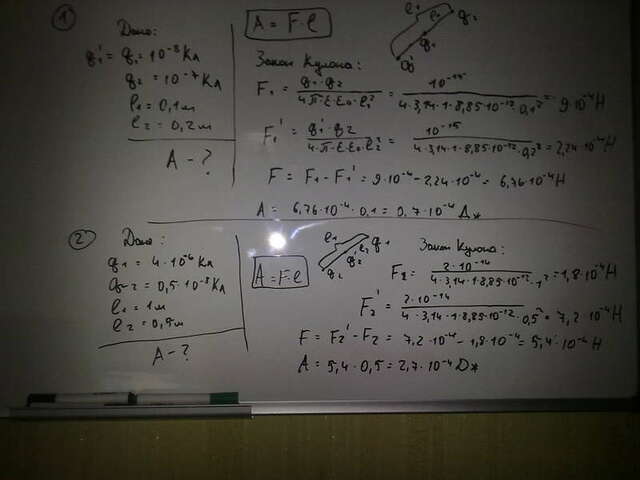 1)
Дано:
q₁' = q₁ = 10⁻⁸ Кл
q₂ = 10⁻⁷ Кл
l₁ = 0,1 м
l₂ = 0,2 м
A - ?
A = F·l
l₂ l₁ q₂
q₁
q₁'
Закон Кулона:
F₁ = q₁·q₂ / 4·π·ε·ε₀·l₁² = 10⁻¹⁵ / 4·3,14·1·8,85·10⁻¹²·0,1² = 9·10⁻⁴ Н
F₁' = q₁'·q₂ / 4·π·ε·ε₀·l₂² = 10⁻¹⁵ / 4·3,14·1·8,85·10⁻¹²·0,2² = 2,24·10⁻⁴ Н
F = F₁ - F₁' = 9·10⁻⁴ - 2,24·10⁻⁴ = 6,76·10⁻⁴ Н
A = 6,76·10⁻⁴·0,1 = 0,7·10⁻⁴ Дж
2)
Дано:
q₁ = 4·10⁻⁶ Кл
q₂ = 0,5·10⁻⁸ Кл
l₁ = 1 м
A - ?
A = F·l
l₁ q₁
l₂
q₂'
q₂
Закон Кулона:
F₂ = 2·10⁻¹⁴ / 4·3,14·1·8,85·10⁻¹²·1² = 1,8·10⁻⁴ Н
F₂' = 2·10⁻¹⁴ / 4·3,14·1·8,85·10⁻¹²·0,5² = 7,2·10⁻⁴ Н
F = F₂' - F₂ = 7,2·10⁻⁴ - 1,8·10⁻⁴ = 5,4·10⁻⁴ Н
A = 5,4·0,5 = 2,7·10⁻⁴ Дж